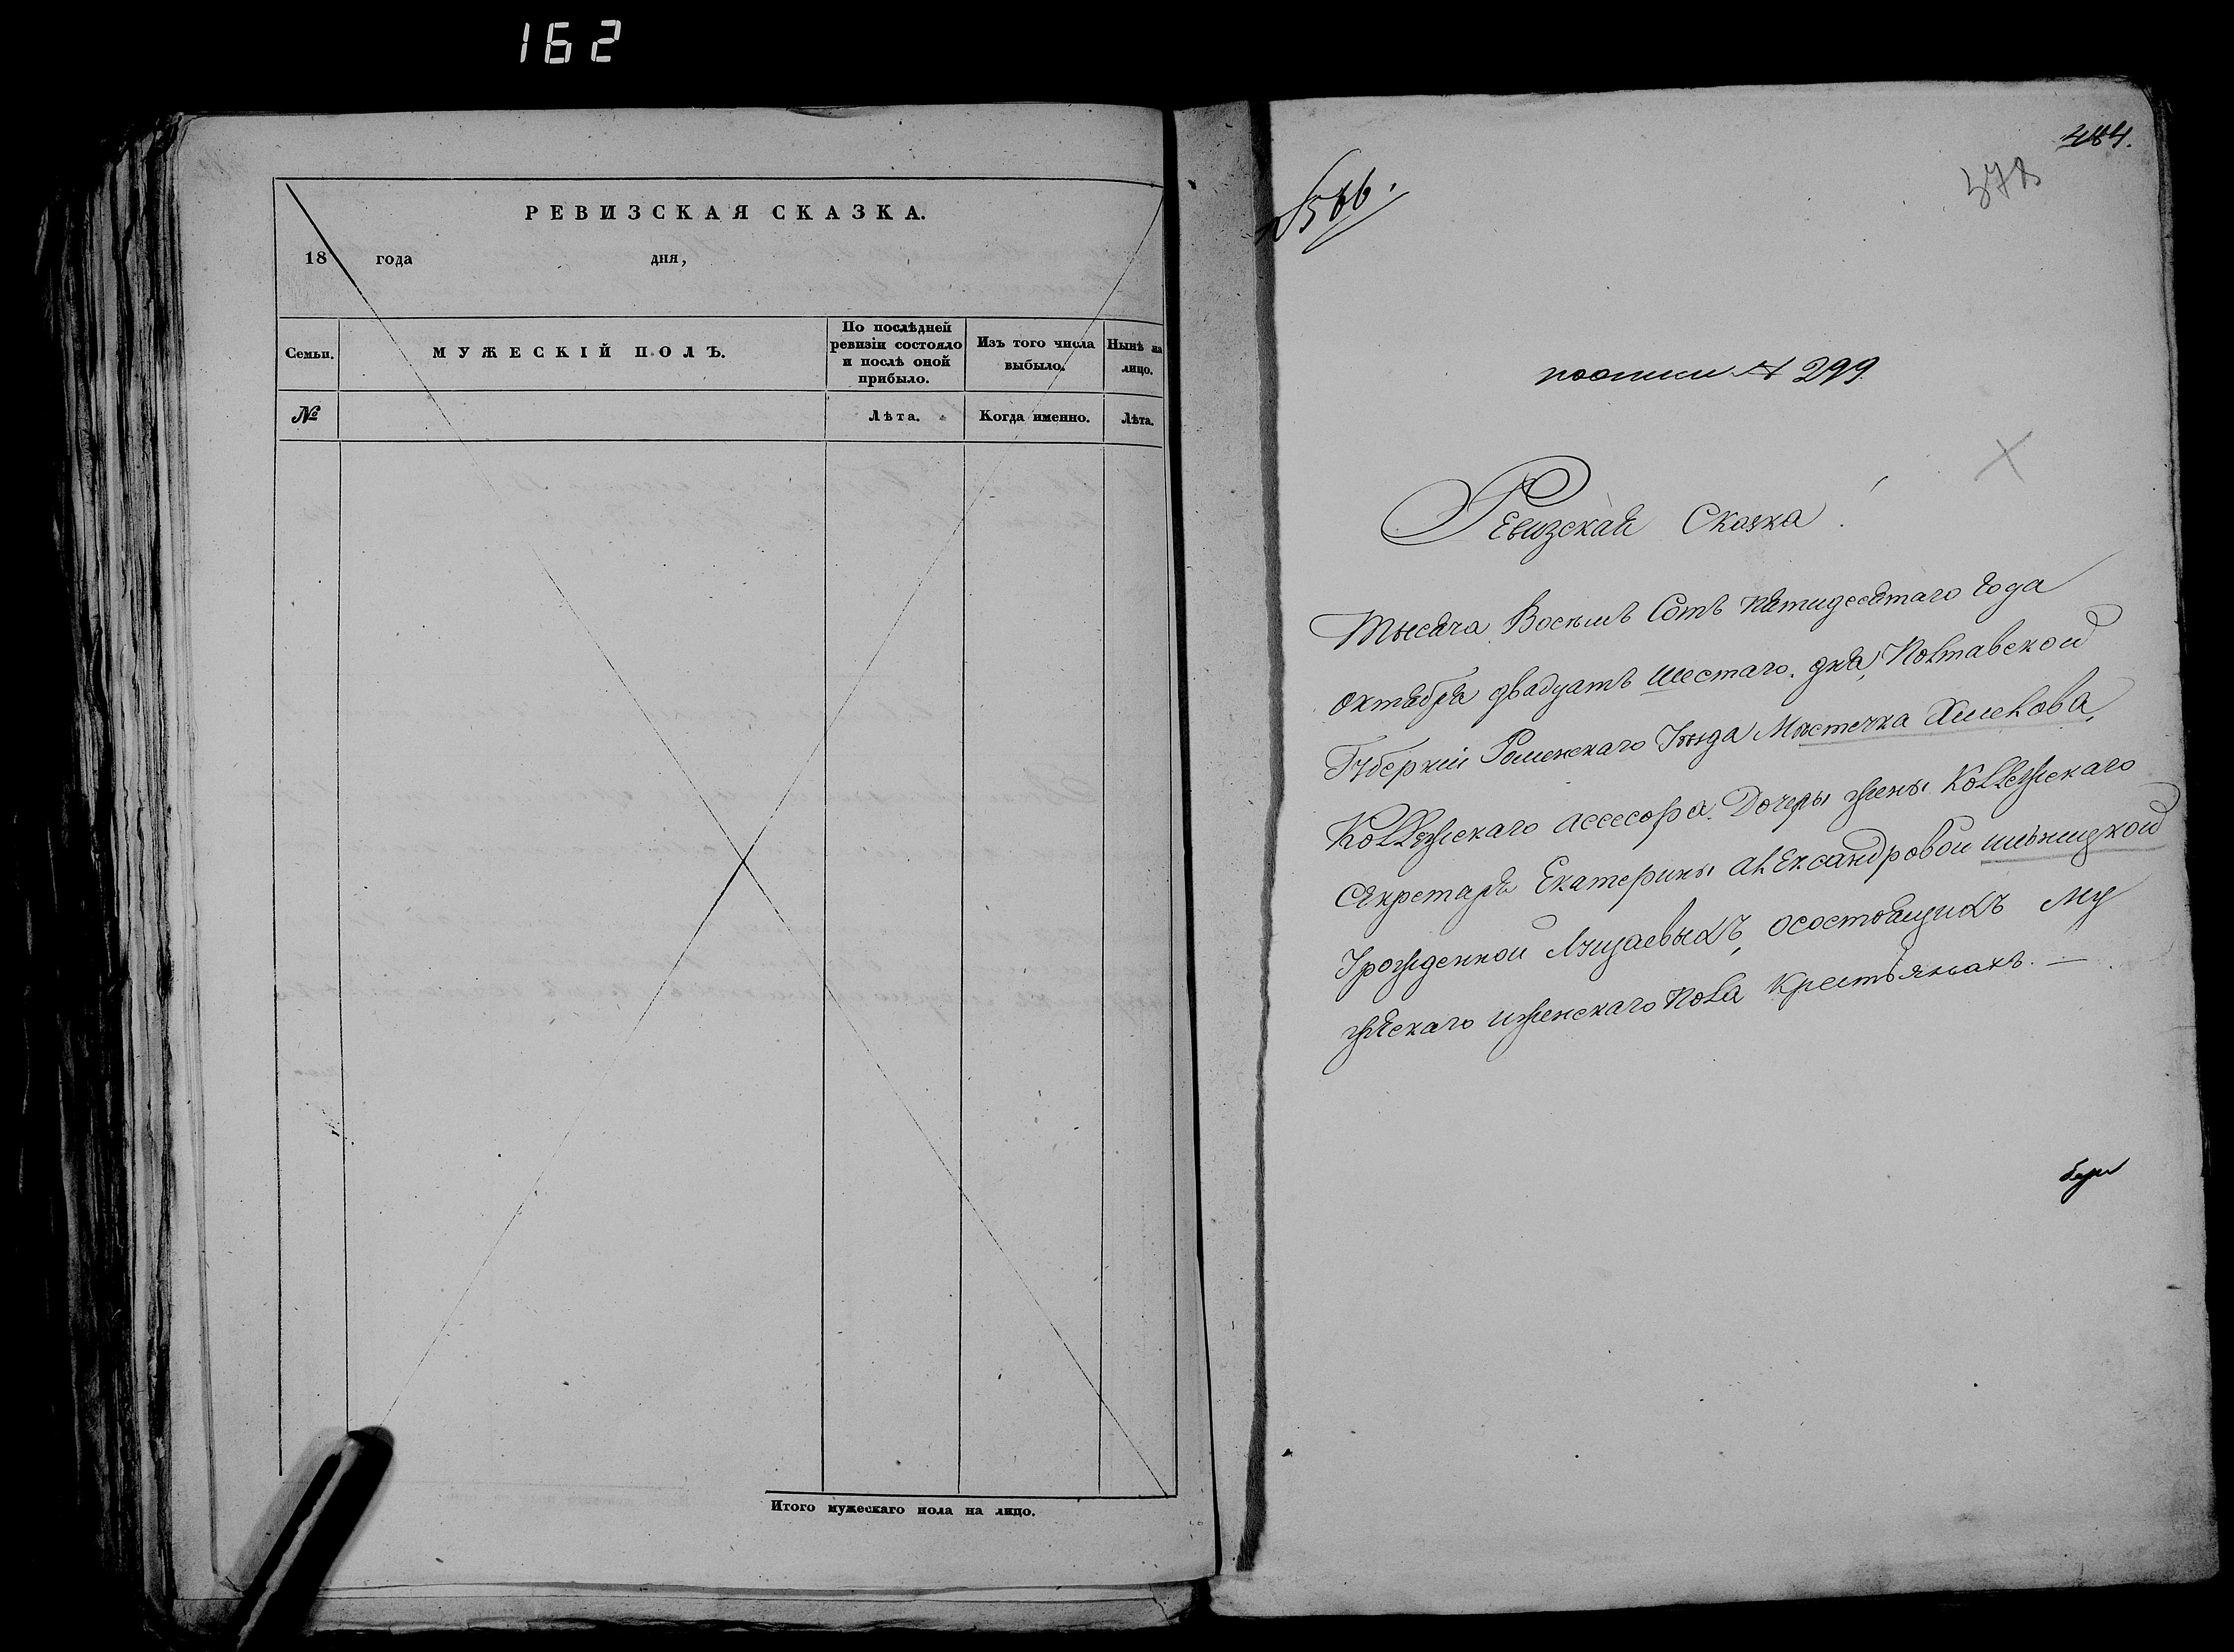 162
РЕВИЗСКАЯ СКАЗКА.
18 года дня,
Семьи.
МУЖЕСКІЙ ПОЛЪ.
По послѣдней ревизіи состояло и послѣ оной прибыло.
Изъ того числа выбыло.
Нынѣ на лицо.
№
Лѣта.
Когда именно.
Лѣта.
Итого мужескаго пола на лицо.
№ 566.
484.
378
поописи № 299.
Ревизская Сказка
Тысяча Восемь Сотъ пятидесятаго года
октября двадцать шестаго дня, Полтавской
Губерніи Роменскаго Уѣзда Мястечка Хмелова,
Коллежскаго Ассесора Дочери жены Коллежскаго
Секретаря Екатерины Александровой
Урожденной осостоящихъ му
жескаго иженскаго пола крестьянахъ. —